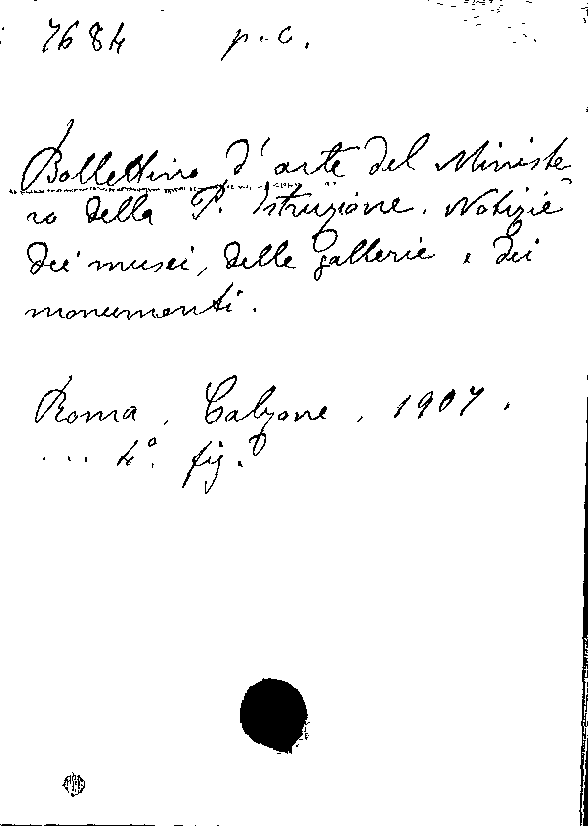 7684 p.c.
Bollettino d'arte del Ministe-
ro della P. Istruzione. Notizie
dei musei, delle gallerie e dei
monumenti.
Roma, Calzone, 1907.
... 4°. fig.